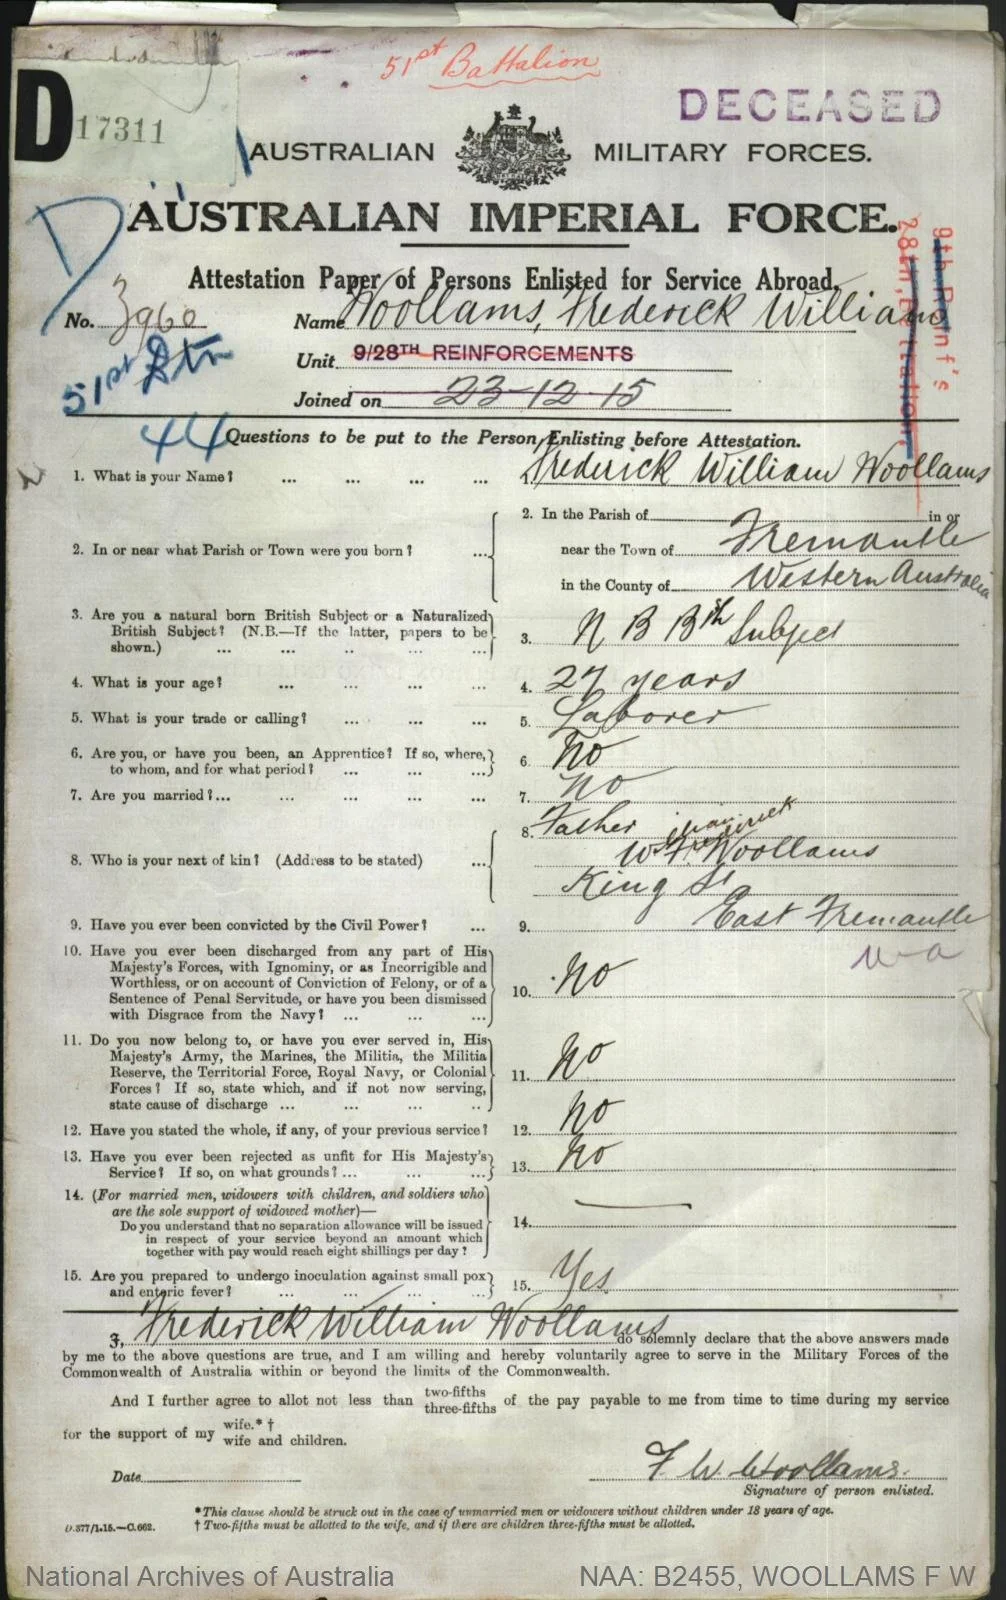 51st Battalion
D 17311
DECEASED
AUSTRALIAN MILITARY FORCES.
AUSTRALIAN IMPERIAL FORCE.
Attestation Paper of Persons Enlisted for Service Abroad.
No. 3960
Name Woollams, Frederick William
Unit 9/28TH REINFORCEMENTS
Joined on 23-12-15
9th Reinf's
28th Battalion
D
51st Btn
44
Questions to be put to the Person Enlisting before Attestation.
1. What is your Name? ... ... ... ... 1. Frederick William Woollams
2. In or near what Parish or Town were you born? ... 2. In the Parish of in or
near the Town of Fremantle
in the County of Western Australia
3. Are you a natural born British Subject or a Naturalized
British Subject? (N.B.—If the latter, papers to be
shown.) ... ... .. ... ... 3. N B Btsh Subject
4. What is your age? ... ... ... ... 4. 27 years
5. What is your trade or calling? ... ... ... 5. Laborer
6. Are you, or have you been, an Apprentice? If so, where,
to whom, and for what period? ... ... ... 6. No
7. Are you married?... ... ... ... ... 7. No
8. Who is your next of kin? (Address to be stated) ... 8. Father
W F Woollams
King St
East Fremantle
W-A
9. Have you ever been convicted by the Civil Power? ... 9.
10. Have you ever been discharged from any part of His
Majesty's Forces, with Ignominy, or as Incorrigible and
Worthless, or on account of Conviction of Felony, or of a
Sentence of Penal Servitude, or have you been dismissed
with Disgrace from the Navy? ... ... ... 10. No
11. Do you now belong to, or have you ever served in, His
Majesty's Army, the Marines, the Militia, the Militia
Reserve, the Territorial Force, Royal Navy, or Colonial
Forces? If so, state which, and if not now serving,
state cause of discharge ... ... ... .. 11. No
12. Have you stated the whole, if any, of your previous service? 12. No
13. Have you ever been rejected as unfit for His Majesty's
Service? If so, on what grounds? ... ... ... 13. No
14. (For married men, widowers with children, and soldiers who
are the sole support of widowed mother)—
Do you understand that no separation allowance will be issued
in respect of your service beyond an amount which
together with pay would reach eight shillings per day? 14. —
15. Are you prepared to undergo inoculation against small pox
and enteric fever? ... ... ... ... 15. Yes
I, Frederick William Woollams do solemnly declare that the above answers made
by me to the above questions are true, and I am willing and hereby voluntarily agree to serve in the Military Forces of the
Commonwealth of Australia within or beyond the limits of the Commonwealth.
And I further agree to allot not less than two-fifths three-fifths of the pay payable to me from time to time during my service
for the support of my wife.* † wife and children.
F. W. Woollams.
Date
Signature of person enlisted.
*This clause should be struck out in the case of unmarried men or widowers without children under 18 years of age.
D.377/1.15.—C.662. † Two-fifths must be allotted to the wife, and if there are children three-fifths must be allotted.
National Archives of Australia
NAA: B2455, WOOLLAMS F W